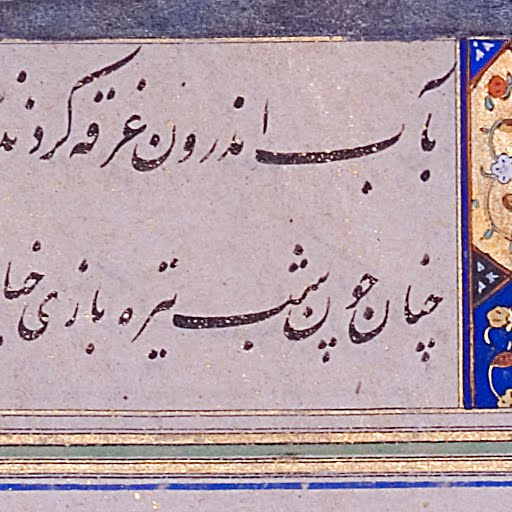 بآب اندرون غرقه کردند
چنان چون شب تیره بازی